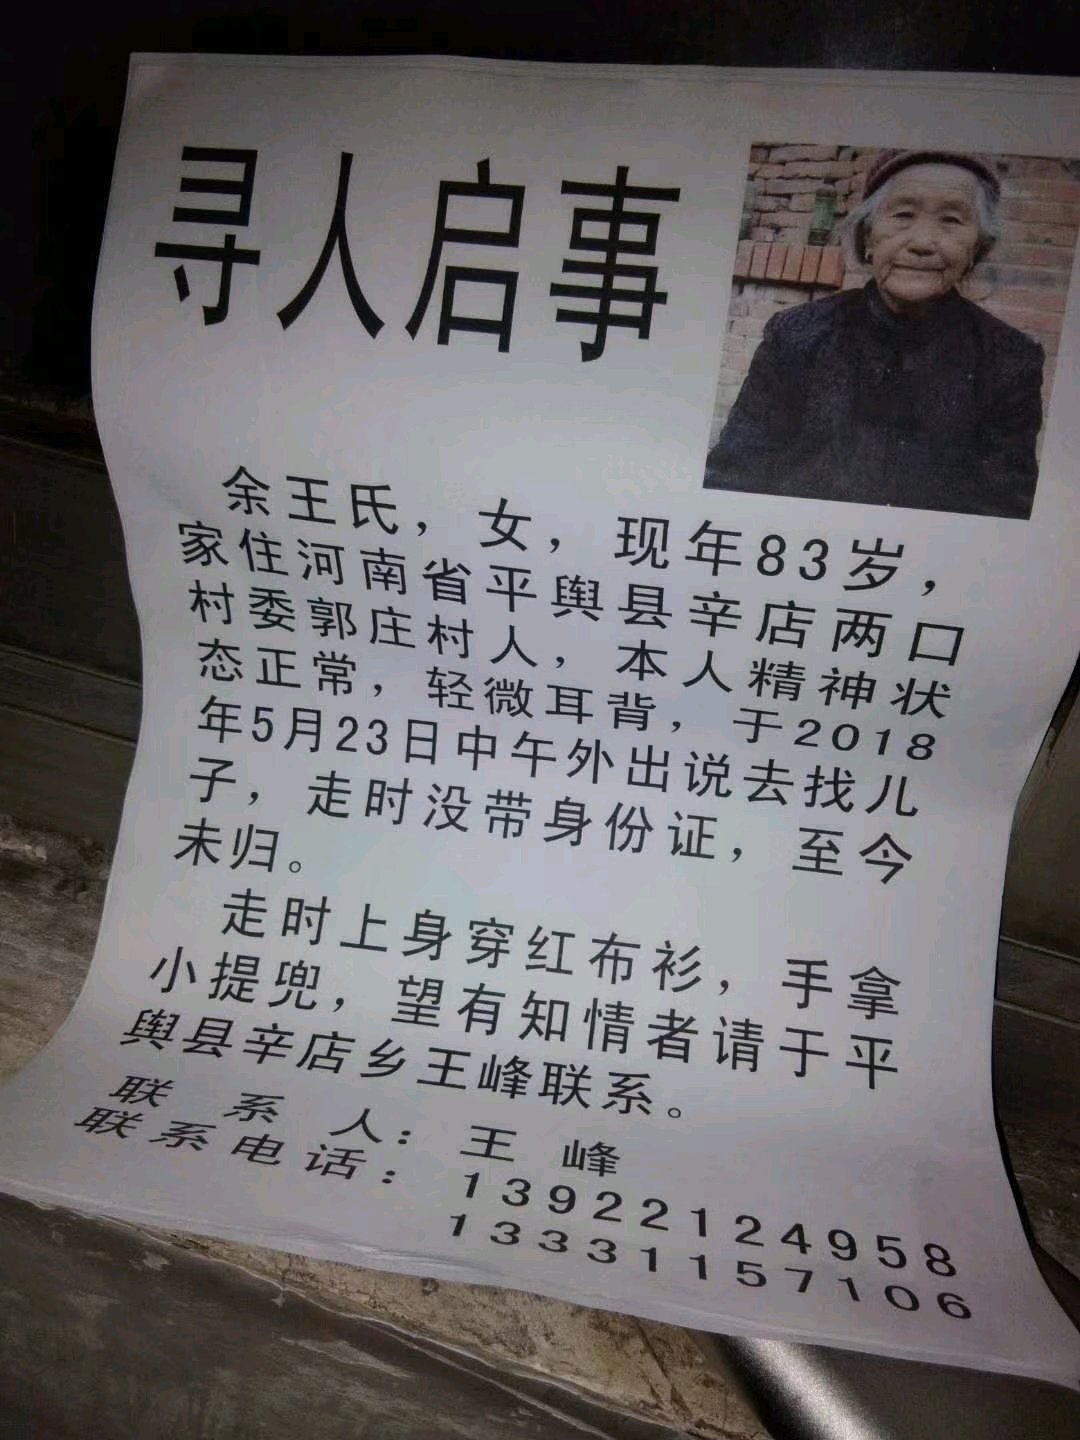 寻人启事
余王氏，女，现年83岁，
家住河南省平舆县辛店两口
村委郭庄村人，本人精神状
态正常，轻微耳背，于2018
年5月23日中午外出说去找儿
子，走时没带身份证，至今
未归。
走时上身穿红布衫，手拿
小提兜，望有知情者请于平
舆县辛店乡王峰联系。
联系人：王峰
联系电话：13922124958
13331157106